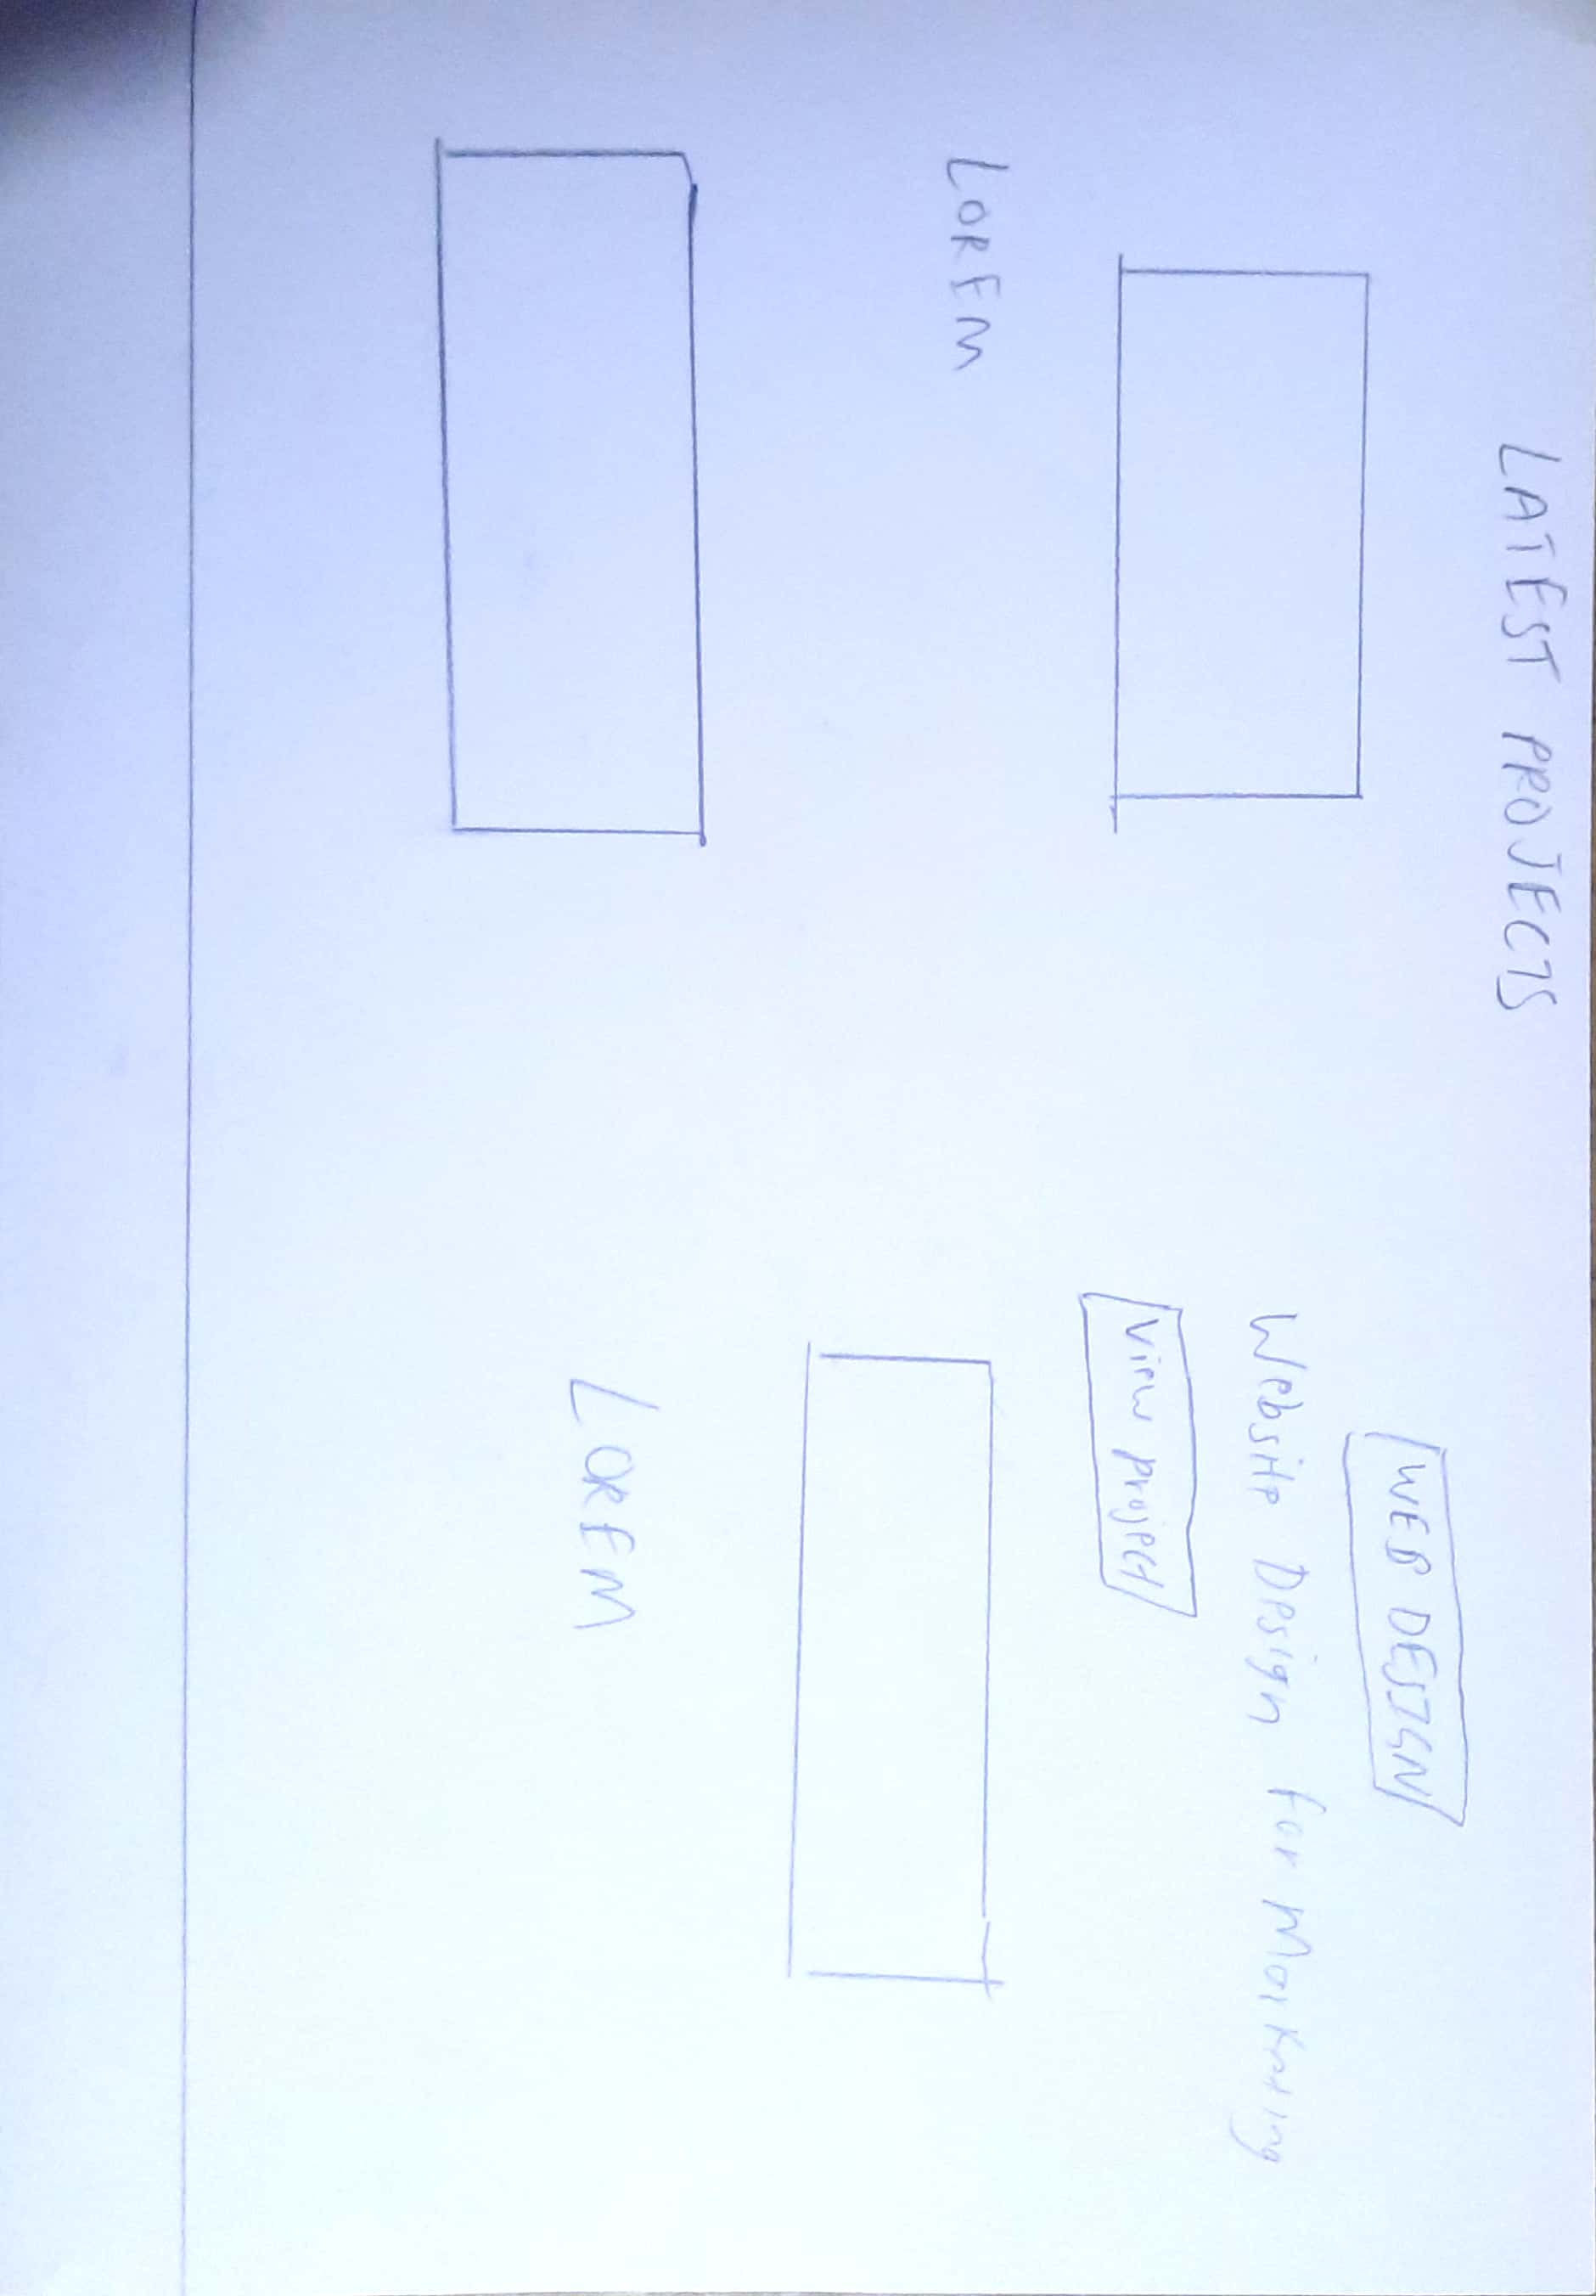 LATEST PROJECTS
WEB DESIGN
Website Design for Marketing
View project
LOREM
LOREM